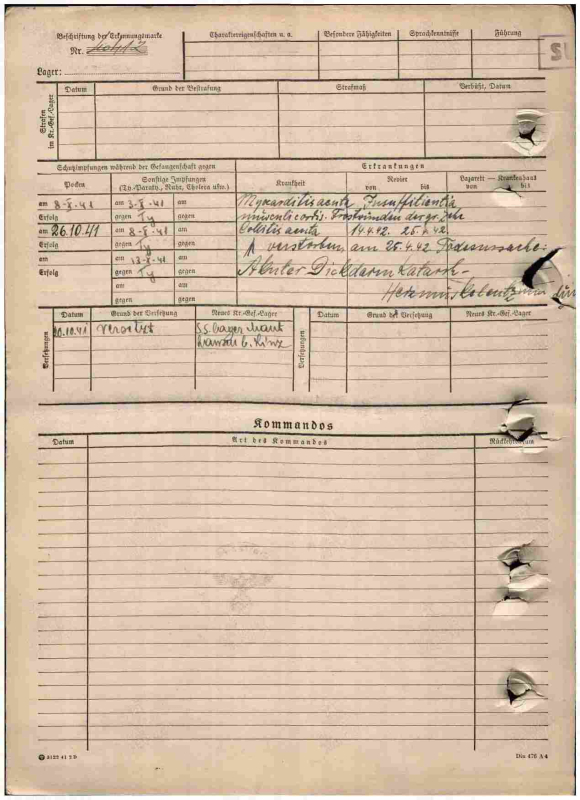 Beschriftung der Erkennungsmarke
Nr.
Lager:
Charaktereigenschaften u. a.
Besondere Fähigkeiten
Sprachkenntnisse
Führung
SU
Strafen im Kr.-Gef.-Lager
Datum
Grund der Bestrafung
Strafmaß
Verbüßt, Datum
Schutzimpfungen während der Gefangenschaft gegen
Erkrankungen
Pocken
Sonstige Impfungen
(Ty.-Paraty., Ruhr, Cholera usw.)
Krankheit
Revier
von bis
Lazarett — Krankenhaus
von bis
am 8-X-41 am 3-X-41 am
Erfolg gegen Ty gegen
am 26.10.41 am 8-X-41 am
Erfolg gegen Ty gegen
am am 13-X-41 am
Erfolg gegen Ty gegen
am am
gegen gegen
Myocarditis acuta, Insuffitientia
musculi cordis. Frostwunden der gr. Zehe
Colitis acuta 14.4.42. 25.4.42.
verstorben am 25.4.42. Todesursache:
Akuter Dickdarmkatarrh-
Versetzungen
Datum
Grund der Versetzung
Neues Kr.-Gef.-Lager
Versetzungen
Datum
Grund der Versetzung
Neues Kr.-Gef.-Lager
20.10.41 Versetzt SS Lager Maut
hausen b. Linz
Kommandos
Datum
Art des Kommandos
Din 476 A 4